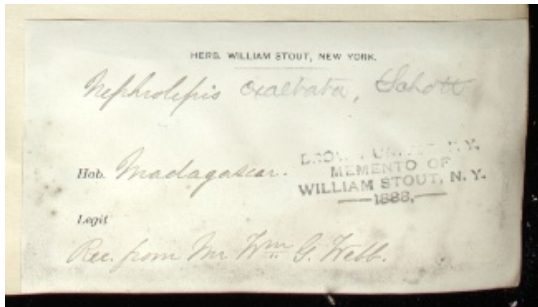 HERB. WILLIAM STOUT, NEW YORK.
Nephrolepis exaltata, Schott
Hab. Madagascar.
BROWN UNIV. N.Y.
MEMENTO OF
WILLIAM STOUT, N. Y.
—1888.—
Legit
Rec. from Mr. Wm. G. Webb.